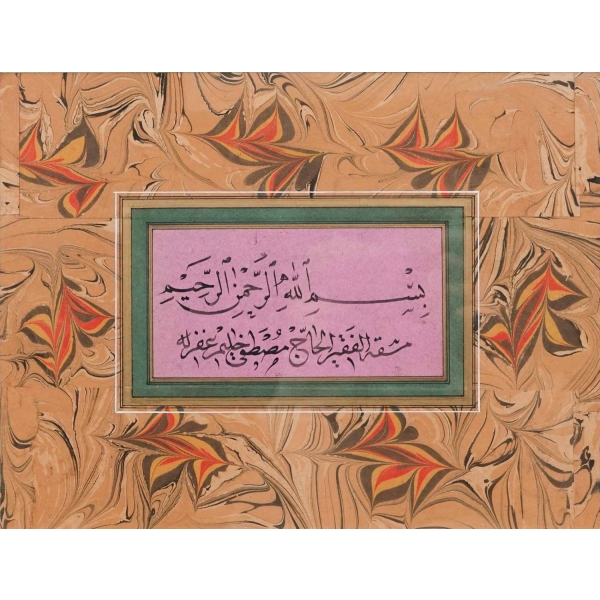 بِسْمِ اللّٰهِ الرَّحْمٰنِ الرَّحِيمِ
مشقه الفقير الحاج مصطفى حليم غفر له